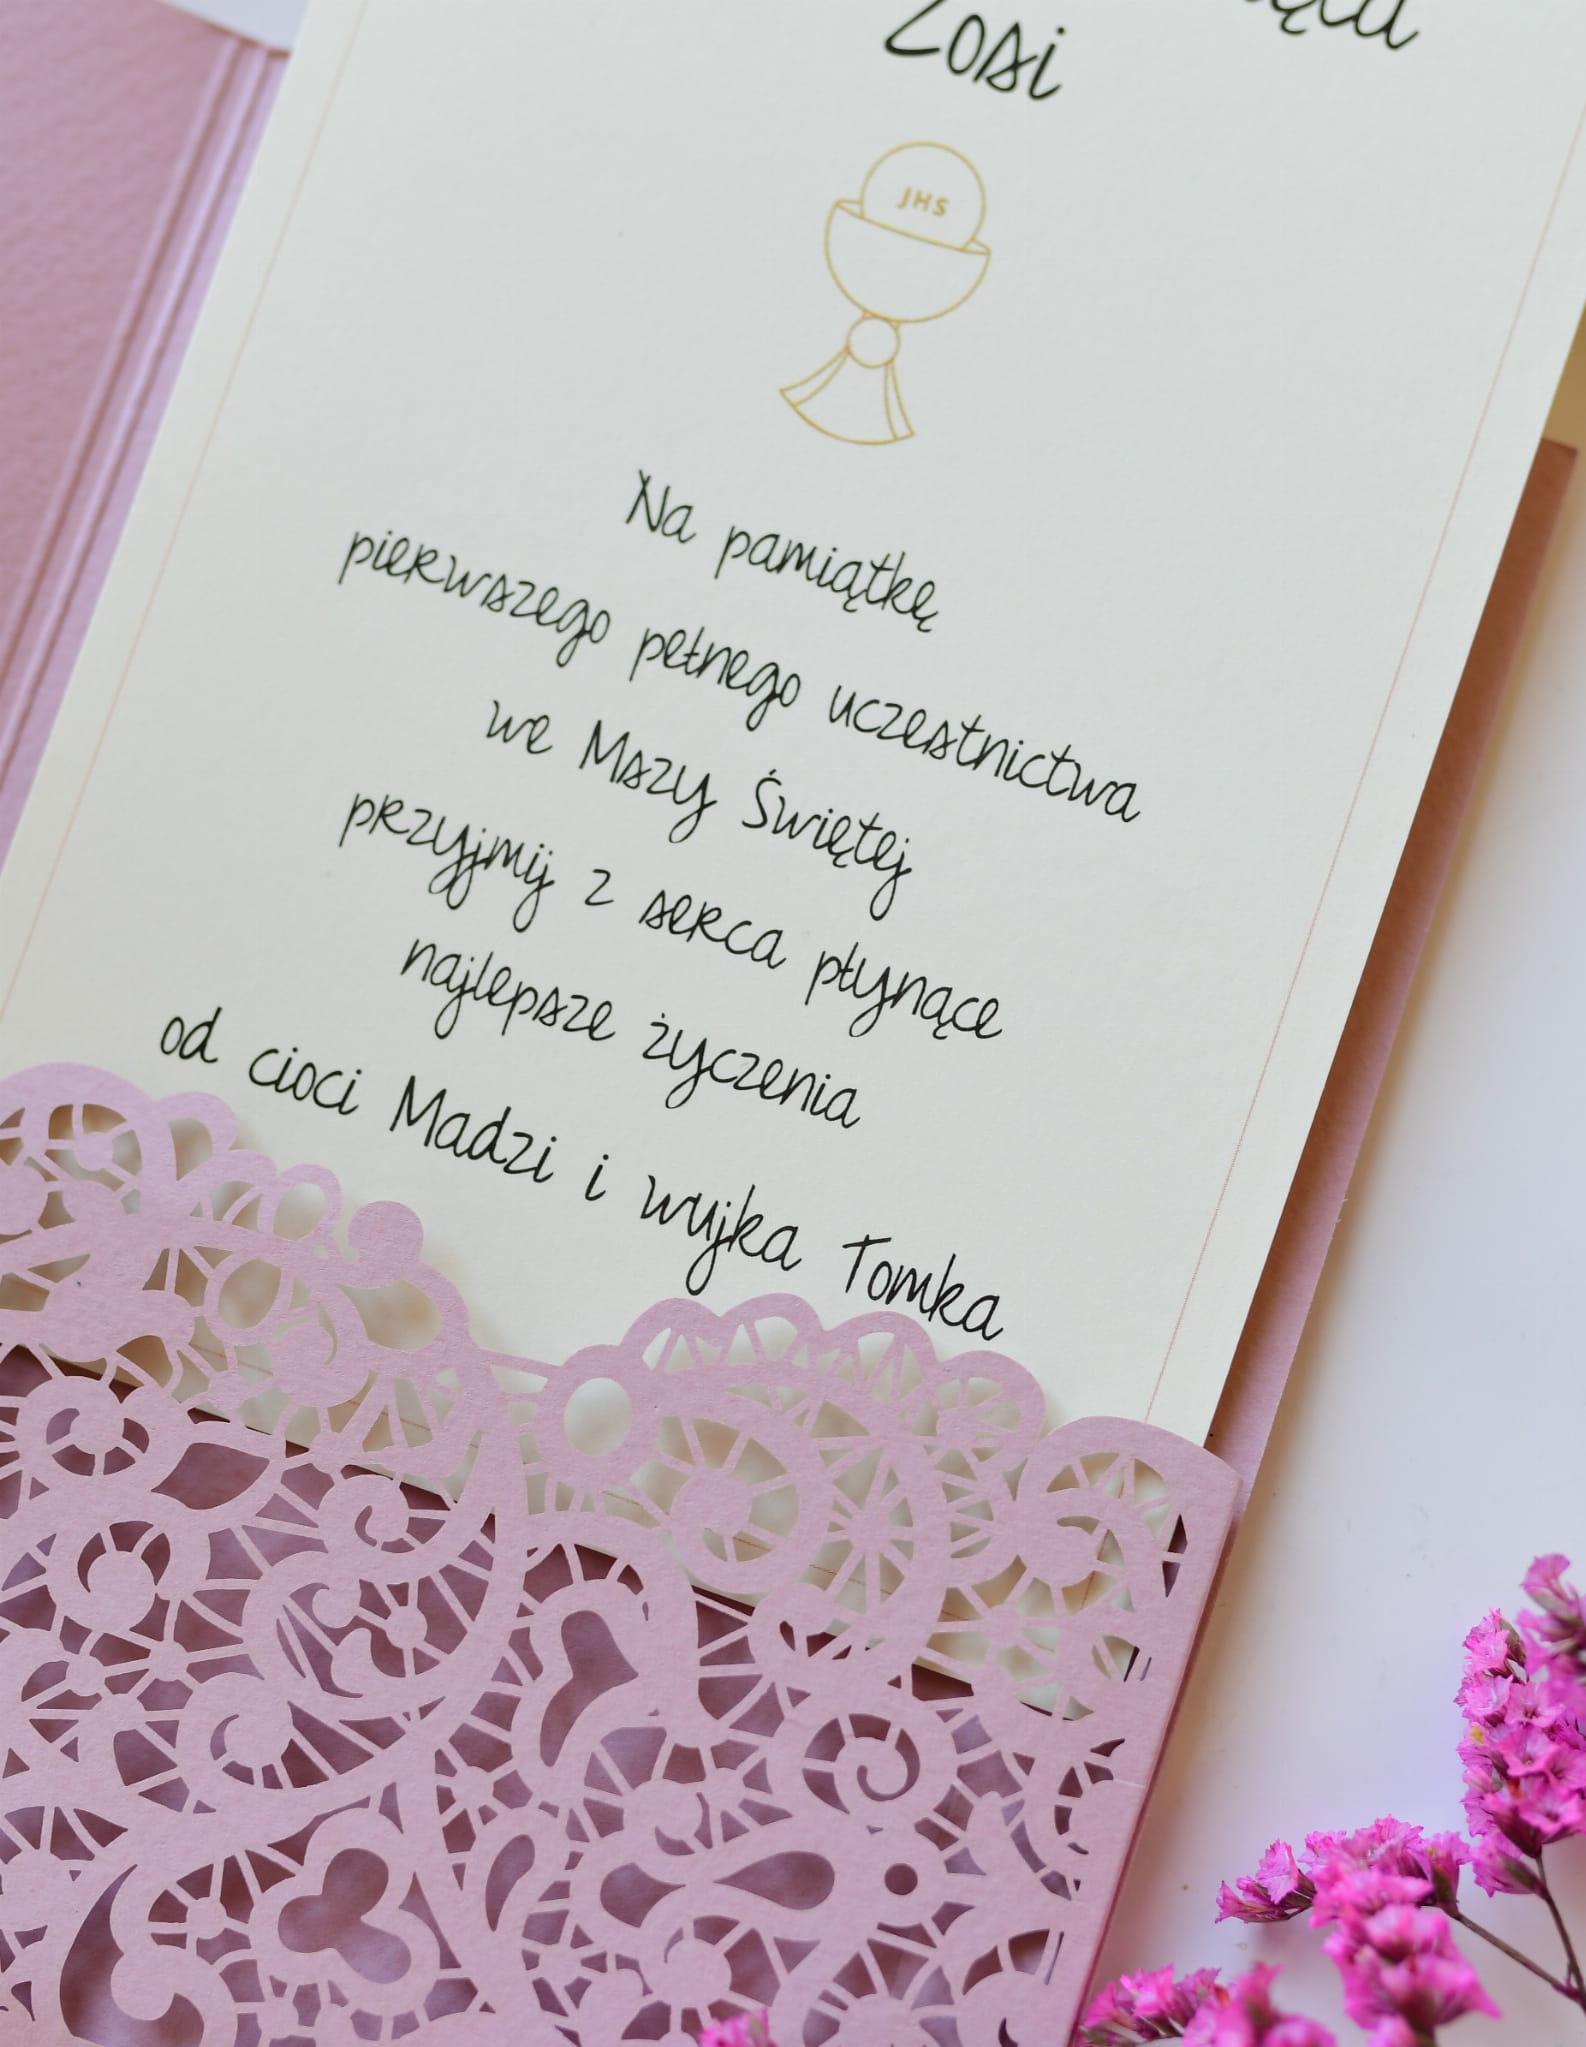 Zosi
JHS
Na pamiątkę
pierwszego pełnego uczestnictwa
we Mszy Świętej
przyjmij z serca płynące
najlepsze życzenia
od cioci Madzi i wujka Tomka